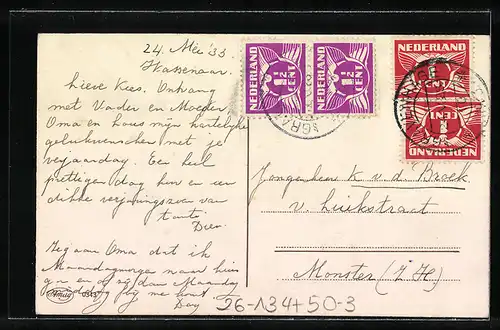 24 Mei '33
Wassenaar.
Lieve Kees. Ontvang
met Vader en Moeder
Oma en Louis mijn hartelijke
gelukwenschen met je
verjaardag. Een heel
prettigen dag hoor en een
dikke verjaringszoen van
tante
Dien.
Zeg aan Oma dat ik
Maandagmorgen naar huis
ga en of zij dan Maandag
middag bij me komt
Dag
NEDERLAND
1½
CENT
NEDERLAND
1½
CENT
NEDERLAND
1
CENT
NEDERLAND
1
CENT
Jongenheer K. v. d. Broek
v. Luikstraat
Monster (Z.H)
Amag 0313
36-134+50-3